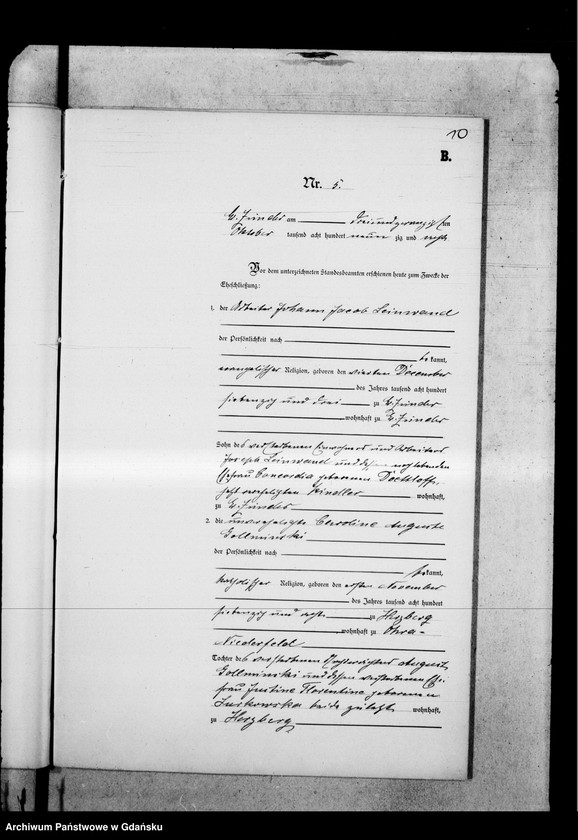 10
B.
Nr. 5.
G. Zünder am dreiundzwanzigsten
Oktober tausend acht hundert neunzig und sechs
Vor dem unterzeichneten Standesbeamten erschienen heute zum Zwecke der
Eheschließung:
1. der Arbeiter Johann Jacob Leinwand
der Persönlichkeit nach
bekannt,
evangelischer Religion, geboren den vierten Dezember
des Jahres tausend acht hundert
siebenzig und drei zu G. Zünder
wohnhaft zu G. Zünder
Sohn des verstorbenen Einwohners und Arbeiters
Joseph Leinwand und dessen
Ehefrau Concordia geborenen
jetzt verehelichten wohnhaft,
zu G. Zünder
2. die unverehelichte Caroline Auguste
Gollminski
der Persönlichkeit nach
bekannt,
katholischer Religion, geboren den ersten November
des Jahres tausend acht hundert
siebenzig und zu Herzberg
wohnhaft zu Ohra-
Niederfeld
Tochter des verstorbenen August
Gollminski und dessen verstorbenen Ehe-
frau Justine Florentine geborenen
beide zuletzt wohnhaft,
zu Herzberg
Archiwum Państwowe w Gdańsku